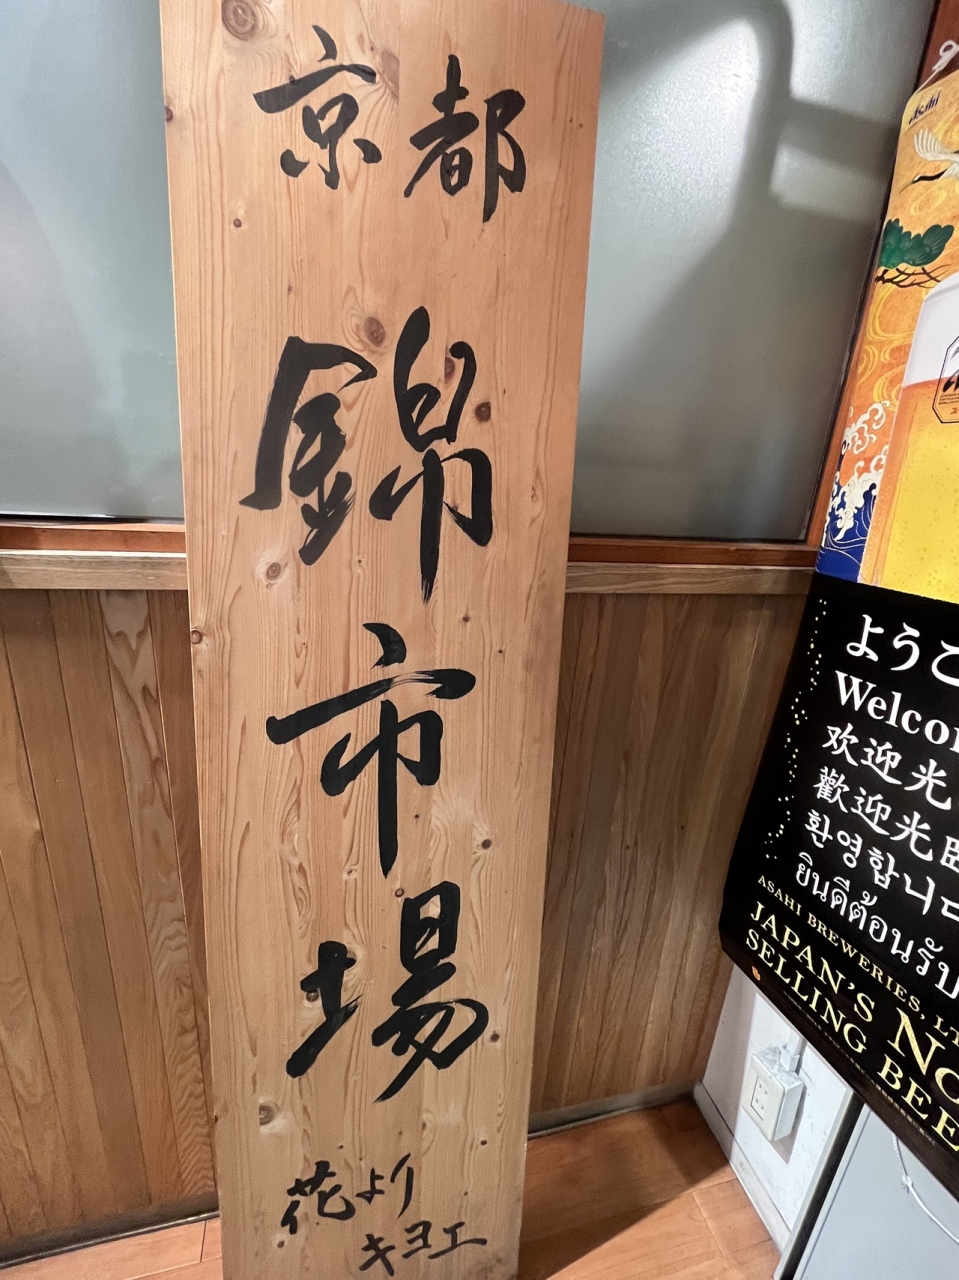 京都
錦市場
花より
キヨエ
Asahi
ようこ
Welco
欢迎光
歡迎光臨
환영합니다
ยินดีต้อนรับ
ASAHI BREWERIES, LT
JAPAN'S NO
SELLING BEE